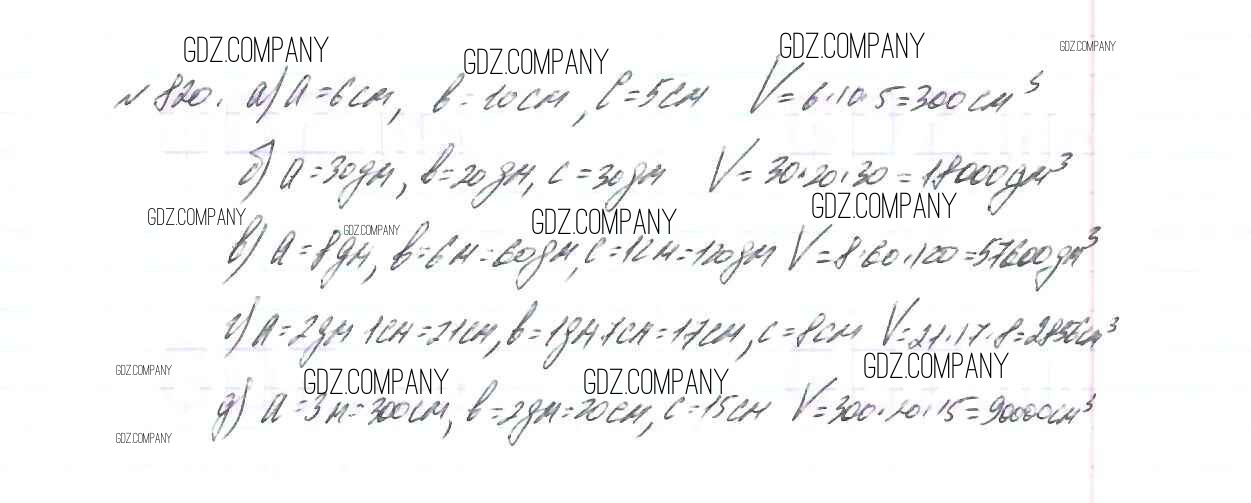 GDZ.COMPANY GDZ.COMPANY GDZ.COMPANY GDZ.COMPANY
№ 820. а) a = 6 см, b = 10 см, c = 5 см V = 6·10·5 = 300 см³
б) a = 30 дм, b = 20 дм, c = 30 дм V = 30·20·30 = 18000 дм³
GDZ.COMPANY GDZ.COMPANY GDZ.COMPANY GDZ.COMPANY
в) a = 8 дм, b = 6 м = 60 дм, c = 12 м = 120 дм V = 8·60·120 = 57600 дм³
г) a = 2 дм 1 см = 21 см, b = 1 дм 7 см = 17 см, c = 8 см V = 21·17·8 = 2856 см³
GDZ.COMPANY GDZ.COMPANY GDZ.COMPANY GDZ.COMPANY
д) a = 3 м = 300 см, b = 2 дм = 20 см, c = 15 см V = 300·20·15 = 90000 см³
GDZ.COMPANY